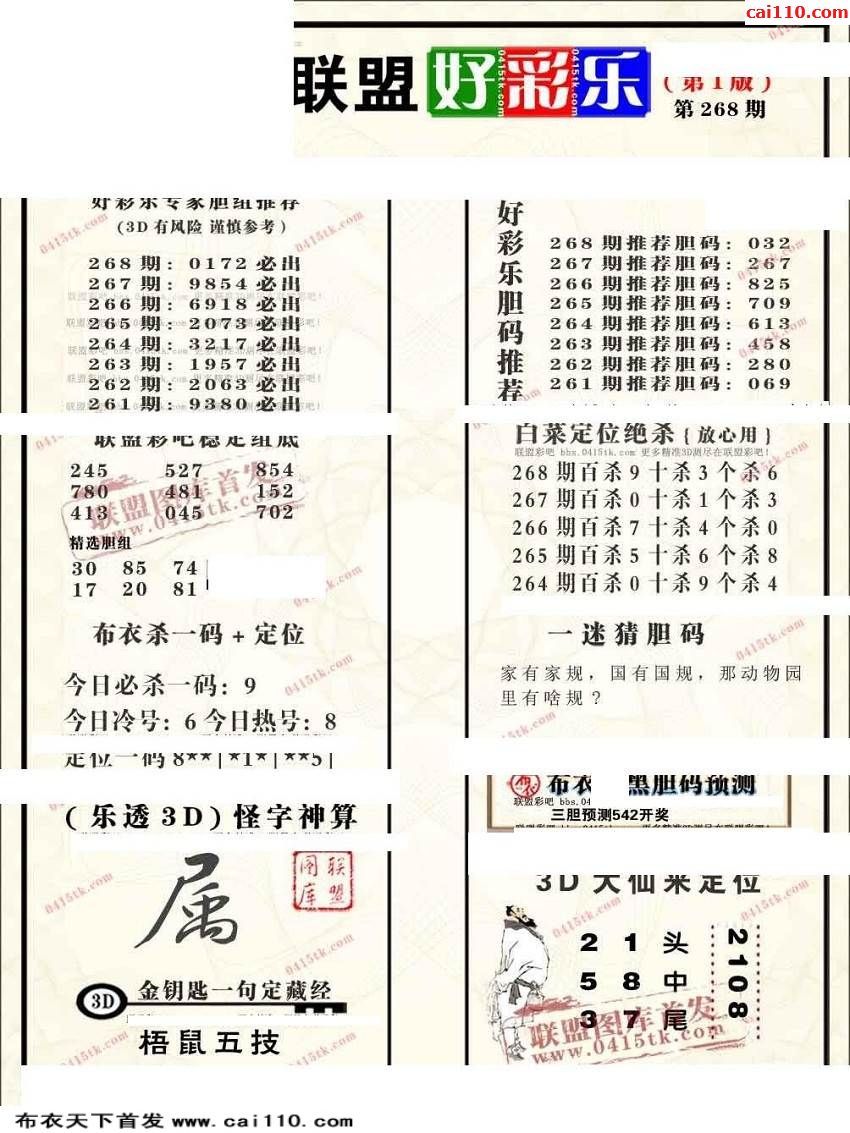 cai110.com
联盟好彩乐
(第1版)
第268期
好彩乐专家胆组推荐
(3D有风险 谨慎参考)
268期: 0172必出
267期: 9854必出
266期: 6918必出
265期: 2073必出
264期: 3217必出
263期: 1957必出
262期: 2063必出
261期: 9380必出
联盟彩吧稳定组底
245 527 854
780 481 152
413 045 702
精选胆组
30 85 74
17 20 81
布衣杀一码+定位
今日必杀一码: 9
今日冷号: 6 今日热号: 8
定位一码 8**|*1*|**5|
(乐透3D)怪字神算
属
联盟图库
3D 金钥匙一句定藏经
梧鼠五技
好彩乐胆码推荐
268期推荐胆码: 032
267期推荐胆码: 267
266期推荐胆码: 825
265期推荐胆码: 709
264期推荐胆码: 613
263期推荐胆码: 458
262期推荐胆码: 280
261期推荐胆码: 069
白菜定位绝杀{放心用}
联盟彩吧 bbs.0415tk.com 更多精准3D测尽在联盟彩吧!
268期百杀9十杀3个杀6
267期百杀0十杀1个杀3
266期百杀7十杀4个杀0
265期百杀5十杀6个杀8
264期百杀0十杀9个杀4
一迷猜胆码
家有家规，国有国规，那动物园
里有啥规？
布衣 黑胆码预测
联盟彩吧 bbs.04
三胆预测542开奖
3D大仙来定位
2 1 头
5 8 中
3 7 尾
2108
联盟图库首发
www.0415tk.com
布衣天下首发 www.cai110.com